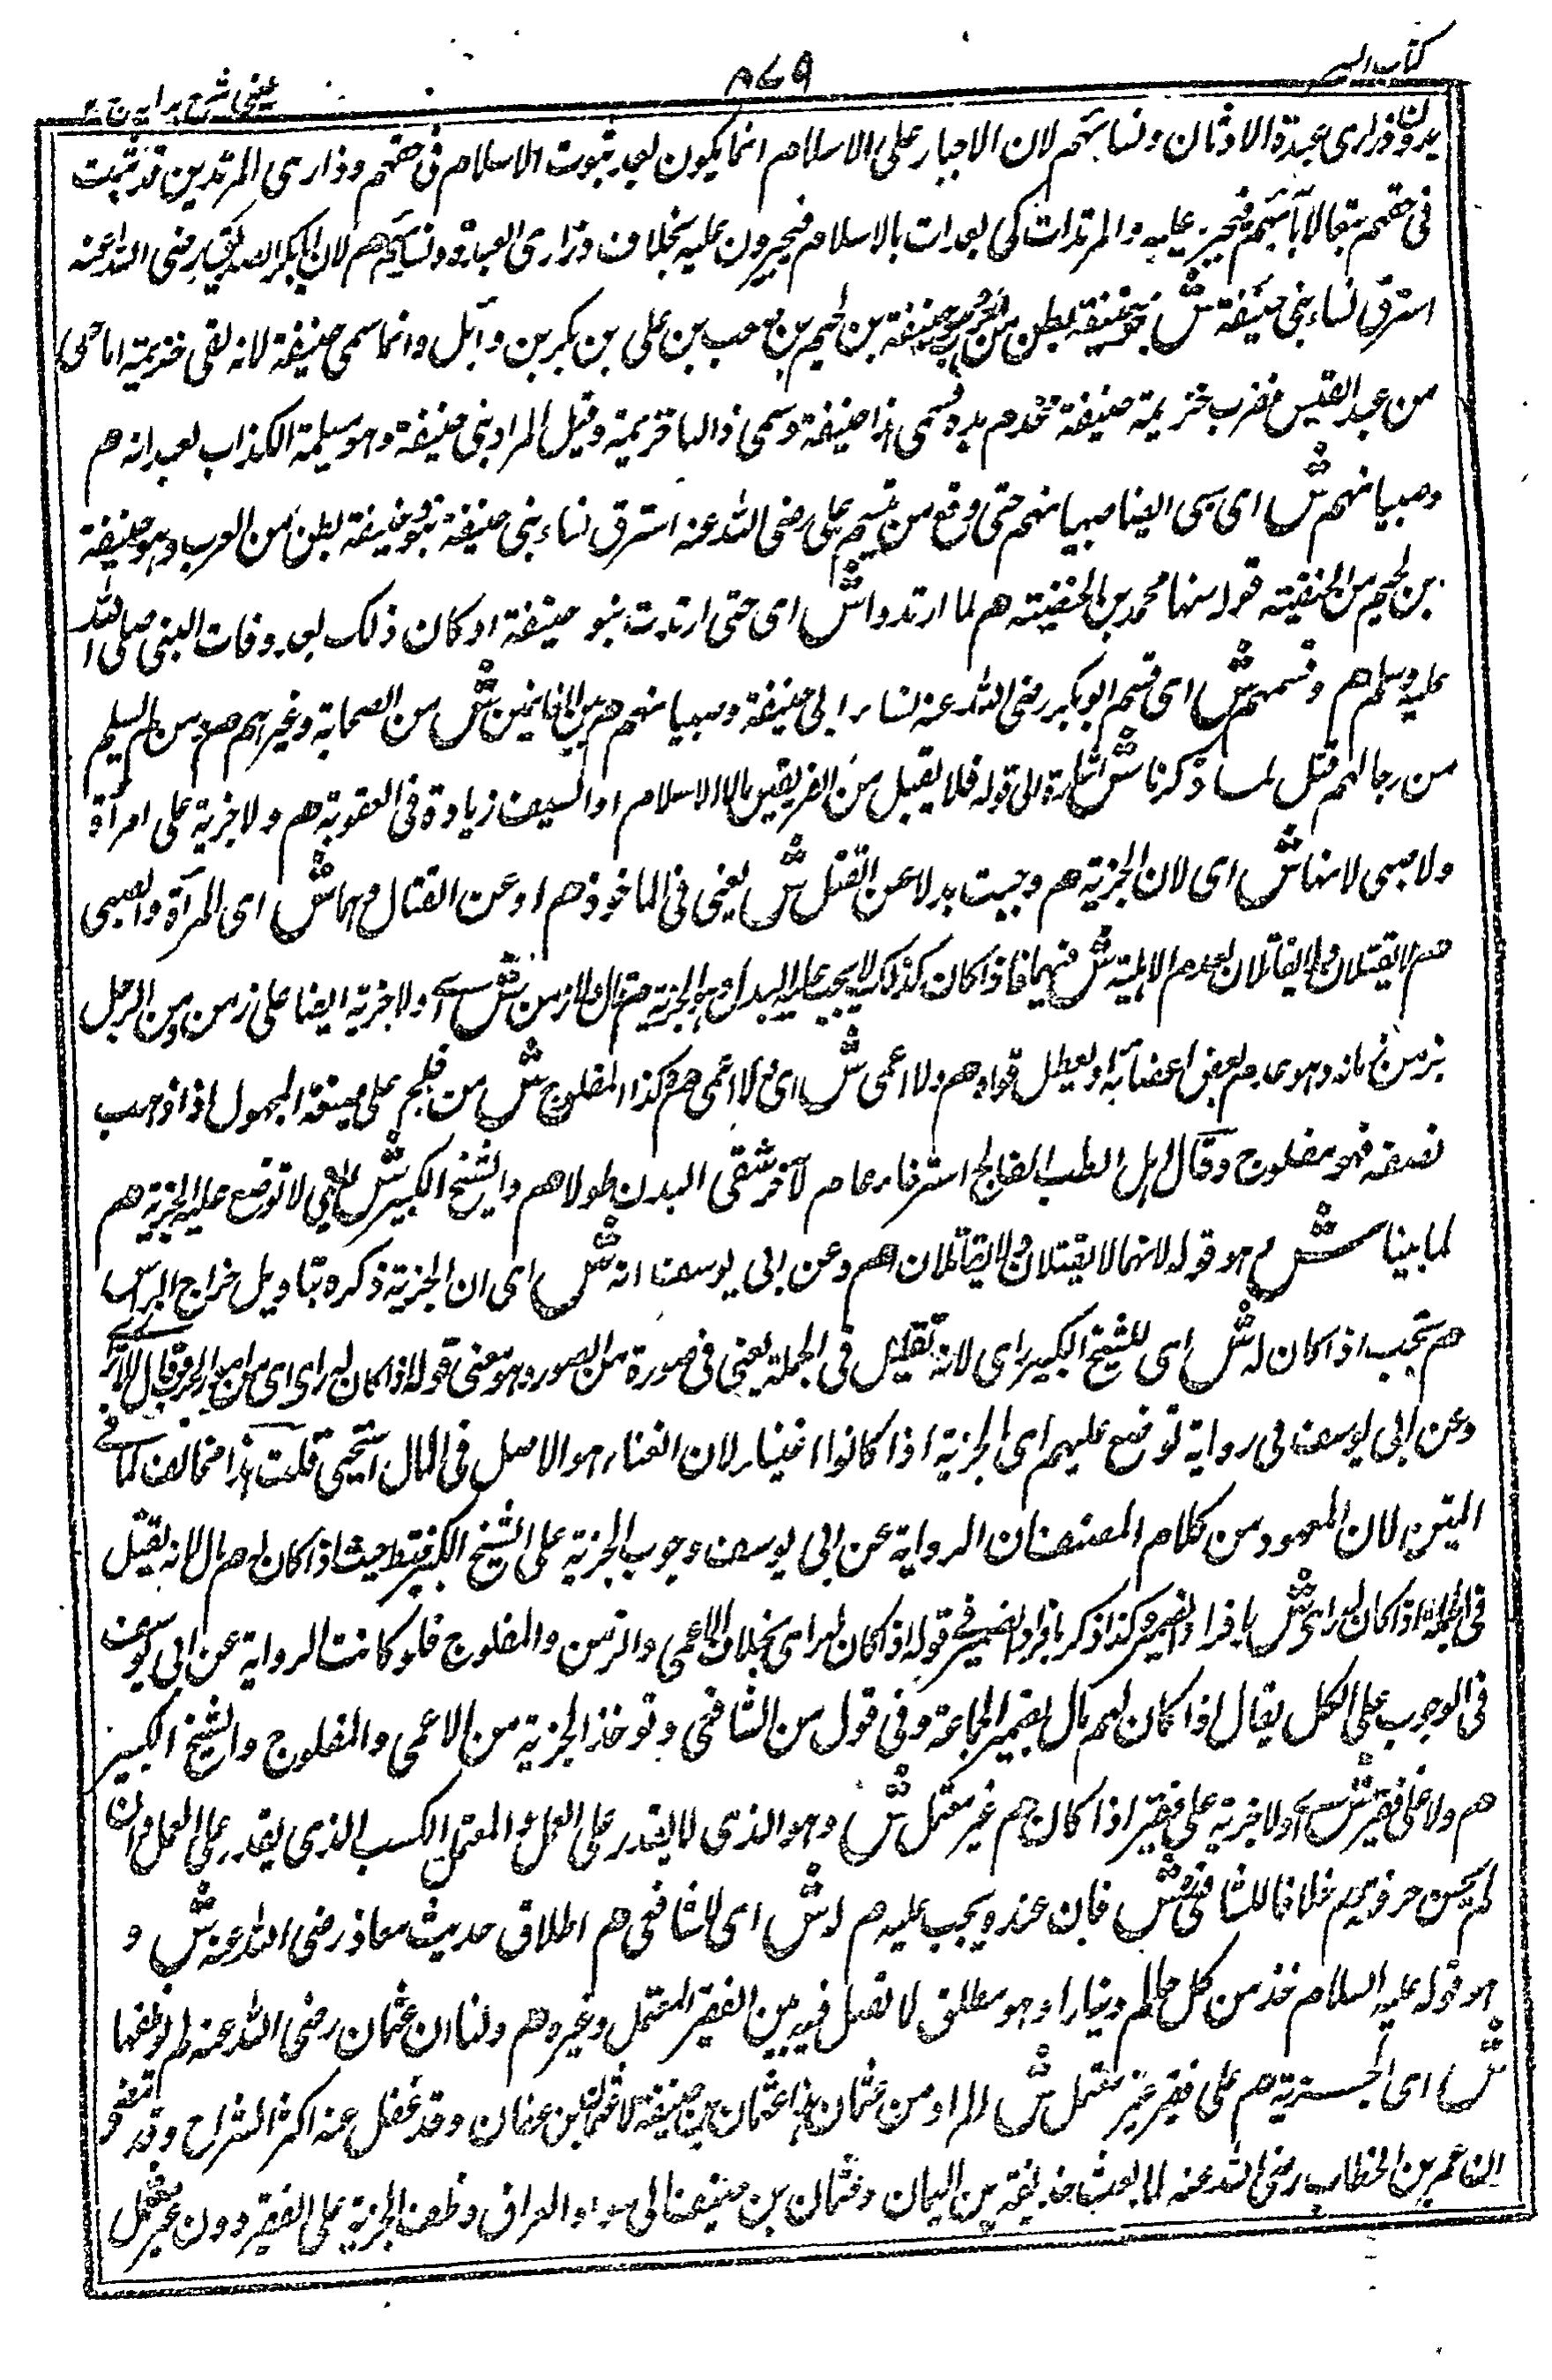 كتاب السير
٨٧٩
عينى شرح هدايه ج ٢
بدون ذرارى عبدة الاوثان ونسائهم لان الاجبار على الاسلام انما يكون بعد ثبوت الاسلام فى حقهم وذرارى المرتدين قد ثبت
فى حقهم تبعا لآبائهم فيجبر عليه والمرتدات كى بعدات بالاسلام فيجبرون عليه بخلاف ذرارى العبدة ونسائهم هم لان ابابكر الصديق رضى الله عنه
استرق نساء بنى حنيفة ش بنو حنيفة بطن من العرب وحنيفة بن لجيم بن صعب بن على بن بكر بن وائل وانما سمى حنيفة لانه لقى خزيمة
من عبد القيس فضرب خزيمة حنيفة فجذم يده فسمى هذا حنيفة وسمى ذالها خزيمة وقيل المراد بنى حنيفة وهو مسيلمة الكذاب لعبد انه هم
وصبيانهم ش اى سبى ايضا صبيانهم حتى وقع من قسيم على رضى الله عنه استرق نساء بنى حنيفة بنو حنيفة بطن من العرب وهو حنيفة
بن لجيم من الحنفية قوله منها محمد بن الحنفية هم لما ارتدوا ش اى حتى ارتدت بنو حنيفة او كان ذلك بعد وفات النبى صلى الله
عليه وسلم هم وقسمهم ش اى قسم ابو بكر رضى الله عنه نساء ابى حنيفة وصبيانهم هم بين الغانمين ش من الصحابة وغيرهم هم ومن لم يسلم
من رجالهم قتل لما ذكرنا ش اشارة الى قوله فلا يقبل من الفريقين الا الاسلام او السيف زيادة فى العقوبة هم ولا جزية على امرأة
ولا صبى لانها ش اى لان الجزية هم وجبت بدلا عن القتل ش يعنى فى الماخوذ هم او عن القتال وهما ش اى المرأة والصبى
هم لا يقتلان ولا يقاتلان لعدم الاهلية ش فيهما فاذا كان كذلك لا يجب عليه البدل وهو الجزية هم قال ولا زمن ش اى ولا جزية ايضا على زمن ومن الرجل
يزمن زمانة وهو عدم بعض اعضائه او تعطل قواه هم ولا اعمى ش اى ولا اعمى هم وكذا المفلوج ش من فلج على صيغة المجهول اذا ذهب
نصفه فهو مفلوج وقال اهل الطب الفالج استرخاء عام لآخر شقى البدن طولا هم والشيخ الكبير ش يعنى لا توضع عليه الجزية هم
لما بينا ش هو قوله لانهما لا يقتلان ولا يقاتلان هم وعن ابى يوسف انه ش اى ان الجزية ذكره بتاويل خراج الراس
هم تجب اذا كان له ش اى للشيخ الكبير راى لانه يقتل فى الجملة يعنى فى صورة من الصور وهو معنى قوله اذا كان له راى اى من امر الحرب وقال
وعن ابى يوسف فى رواية توضع عليهم اى الجزية اذا كانوا اغنياء لان الغناء هو الاصل فى المال انتهى قلت هذا مخالف لما فى
المتن لان المعهود من كلام المصنف ان الرواية عن ابى يوسف وجوب الجزية على الشيخ الكبير فقط حيث اذا كان له مال لانه يقتل
فى الجملة اذا كان له راى ش بافراد الضمير وكذا ذكر بافراد الضمير فى قوله اذا كان له راى بخلاف الاعمى والزمن والمفلوج فلو كانت الرواية عن ابى يوسف
فى الوجوب على الكل يقال اذا كان لهم مال بضمير الجماعة وفى قول من الشافعى وتوخذ الجزية من الاعمى والمفلوج والشيخ الكبير
هم ولا على فقير ش اى ولا جزية على فقير اذا كان هم غير معتمل ش وهو الذى لا يقدر على العمل والمعتمل الكسب الذى يقدر على العمل وان
لم يحسن حرفة هم خلافا للشافعى ش فان عنده يجب عليه هم له ش اى للشافعى هم اطلاق حديث معاذ رضى الله عنه ش و
هو قوله عليه السلام خذ من كل حالم دينارا وهو مطلق لا فصل فيه بين الفقير المعتمل وغيره هم ولنا ان عثمان رضى الله عنه لم يوظفها
ش اى الجزية هم على فقير غير معتمل ش المراد من عثمان هذا عثمان بن حنيف لا عثمان بن عفان وقد غفل عنه اكثر الشراح وقد
ان عمر بن الخطاب رضى الله عنه لما بعث حذيفة بن اليمان وعثمان بن حنيف الى سواد العراق وظف الجزية على الفقير دون غير معتمل